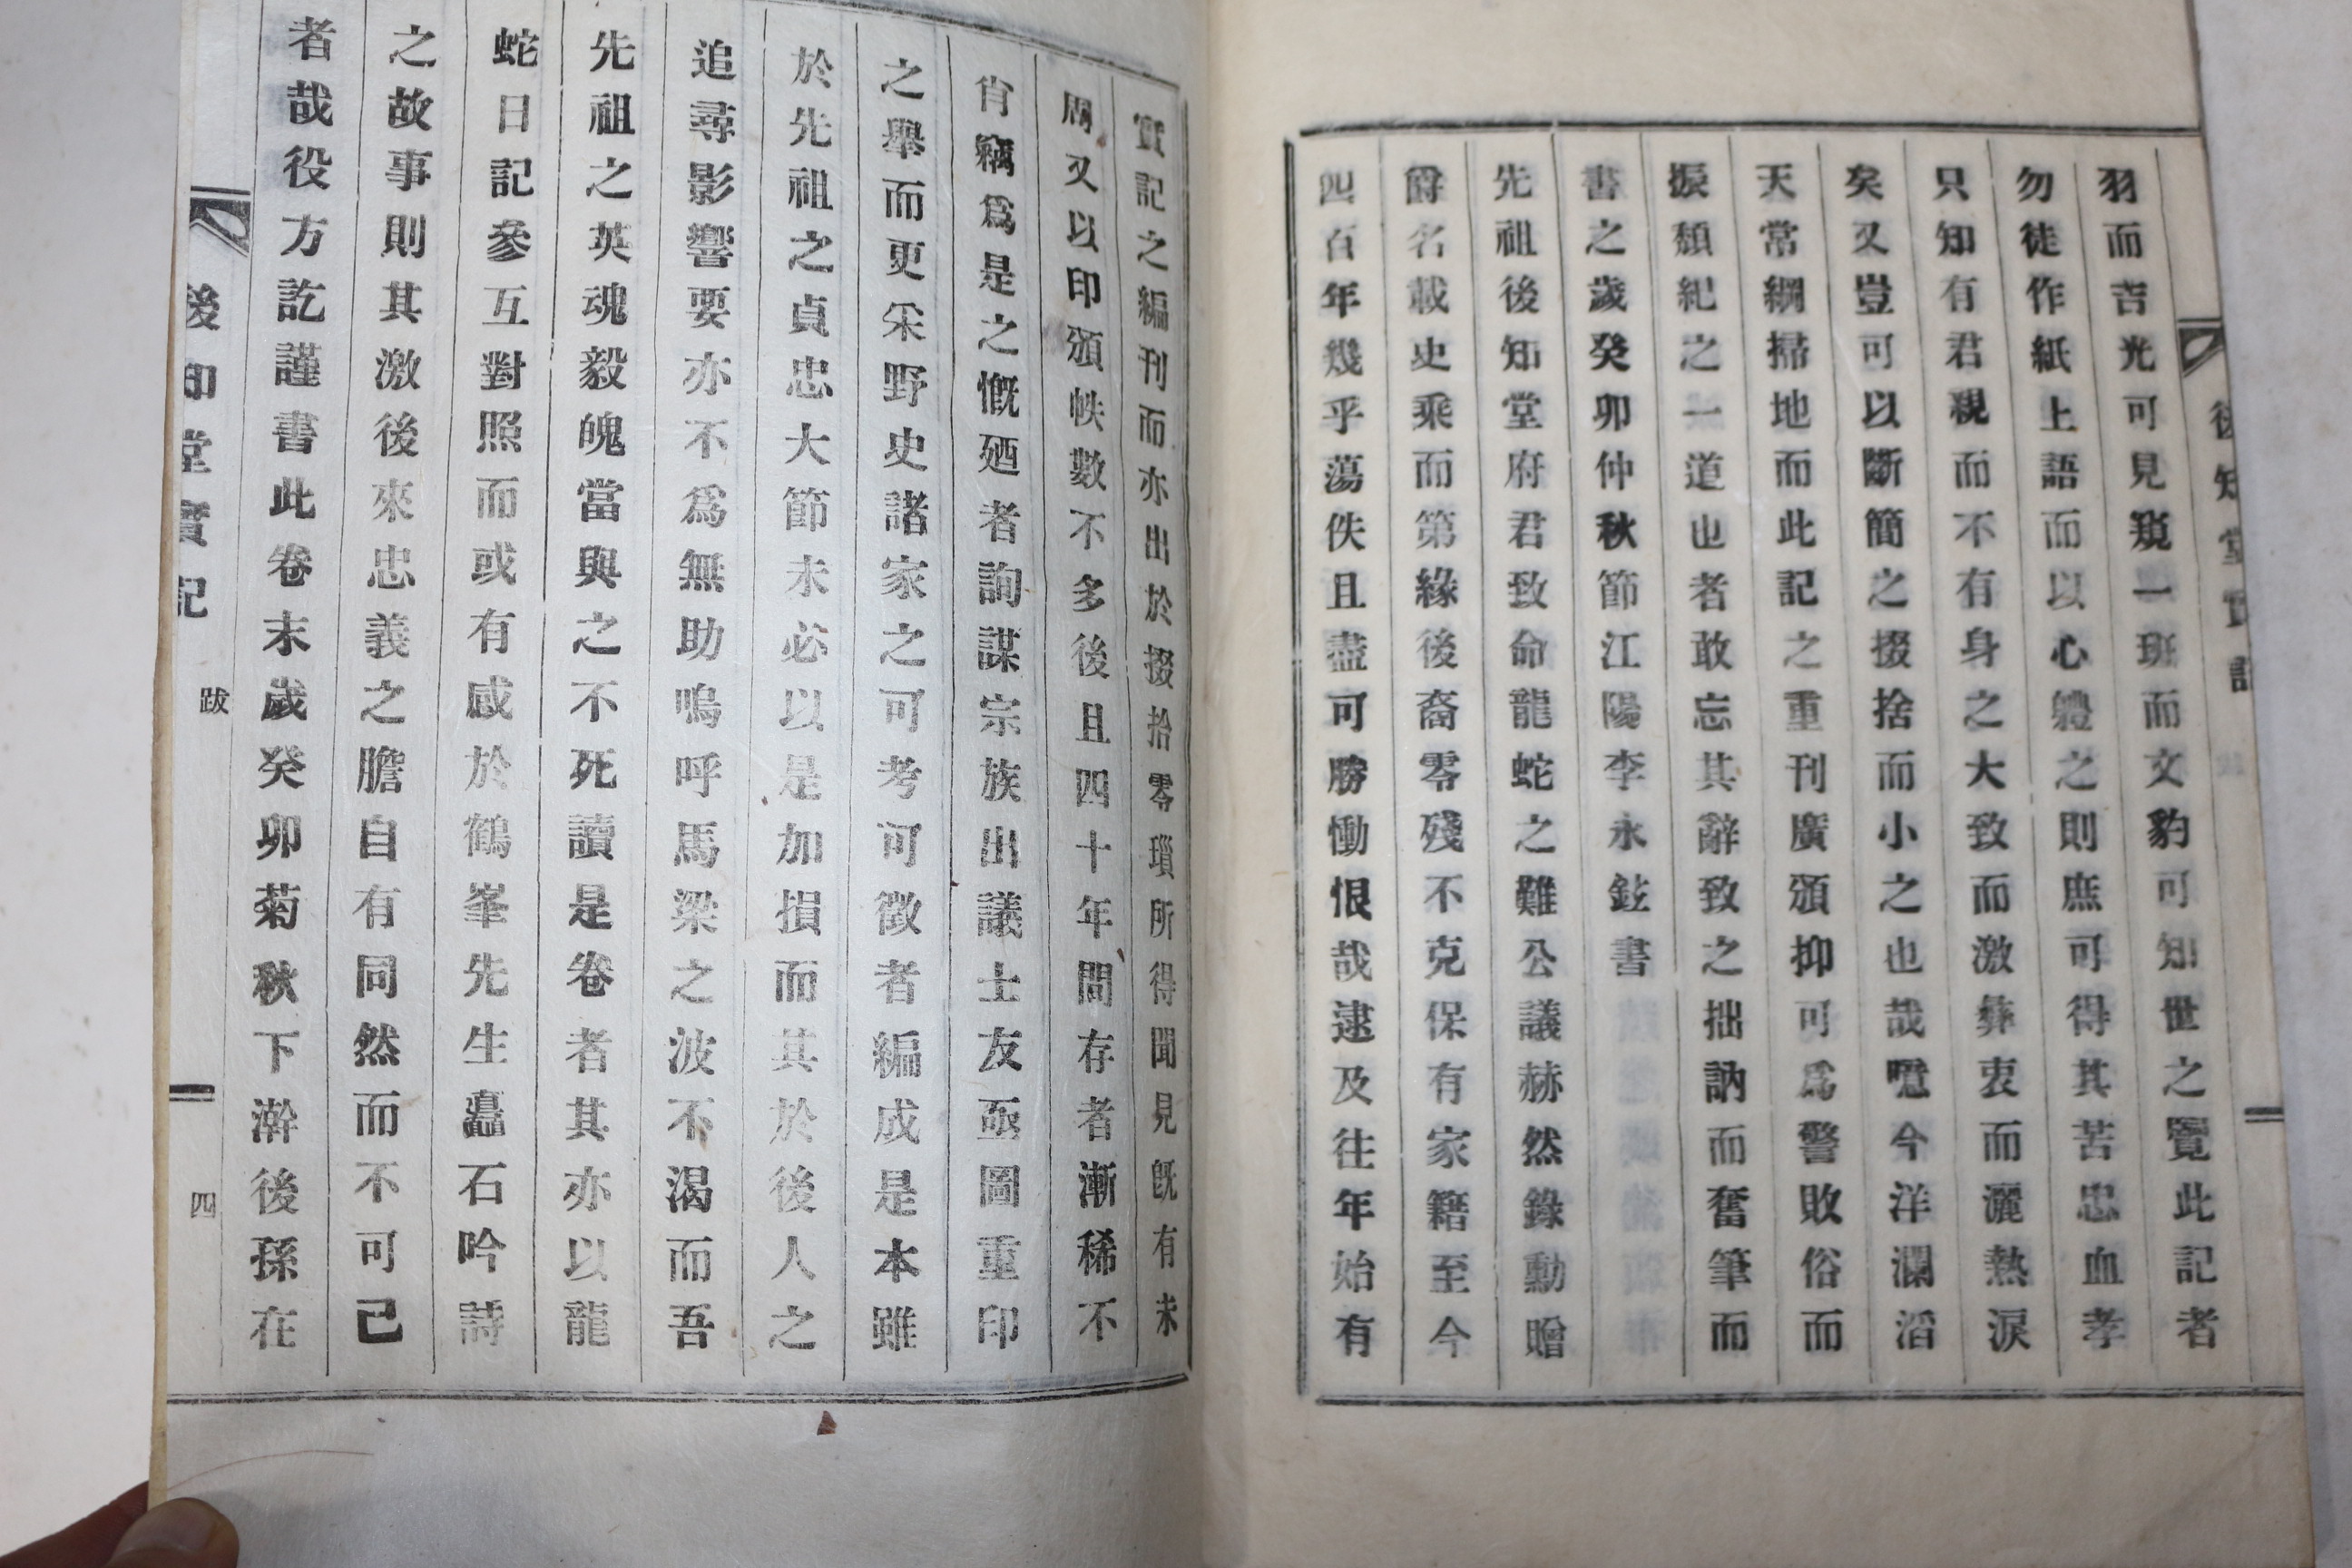 羽而吉光可見窺一斑而文豹可知世之覽此記者
勿徒作紙上語而以心軆之則庶可得其苦忠血孝
只知有君親而不有身之大致而激彝衷而灑熱淚
矣又豈可以斷簡之掇捨而小之也哉噫今洋瀾滔
天常綱掃地而此記之重刊廣頒抑可爲警敗俗而
振頹紀之一道也者敢忘其辭致之拙訥而奮筆而
書之歲癸卯仲秋節江陽李永鉉書
先祖後知堂府君致命龍蛇之難公議赫然錄勳贈
爵名載史乘而第緣後裔零殘不克保有家籍至今
四百年幾乎蕩佚且盡可勝慟恨哉逮及往年始有
實記之編刊而亦出於掇拾零瑣所得聞見旣有未
周又以印頒帙數不多後且四十年間存者漸稀不
肖竊爲是之慨廼者詢謀宗族出議士友亟圖重印
之擧而更采野史諸家之可考可徵者編成是本雖
於先祖之貞忠大節未必以是加損而其於後人之
追尋影響要亦不爲無助嗚呼馬梁之波不渴而吾
先祖之英魂毅魄當與之不死讀是卷者其亦以龍
蛇日記參互對照而或有感於鶴峯先生矗石吟詩
之故事則其激後來忠義之膽自有同然而不可已
者哉役方訖謹書此卷末歲癸卯菊秋下澣後孫在
後知堂實記
跋
四